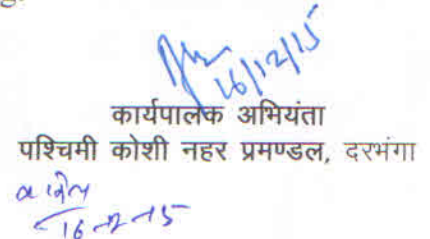 16/12/15
कार्यपालक अभियंता
पश्चिमी कोशी नहर प्रमण्डल, दरभंगा
16-12-15